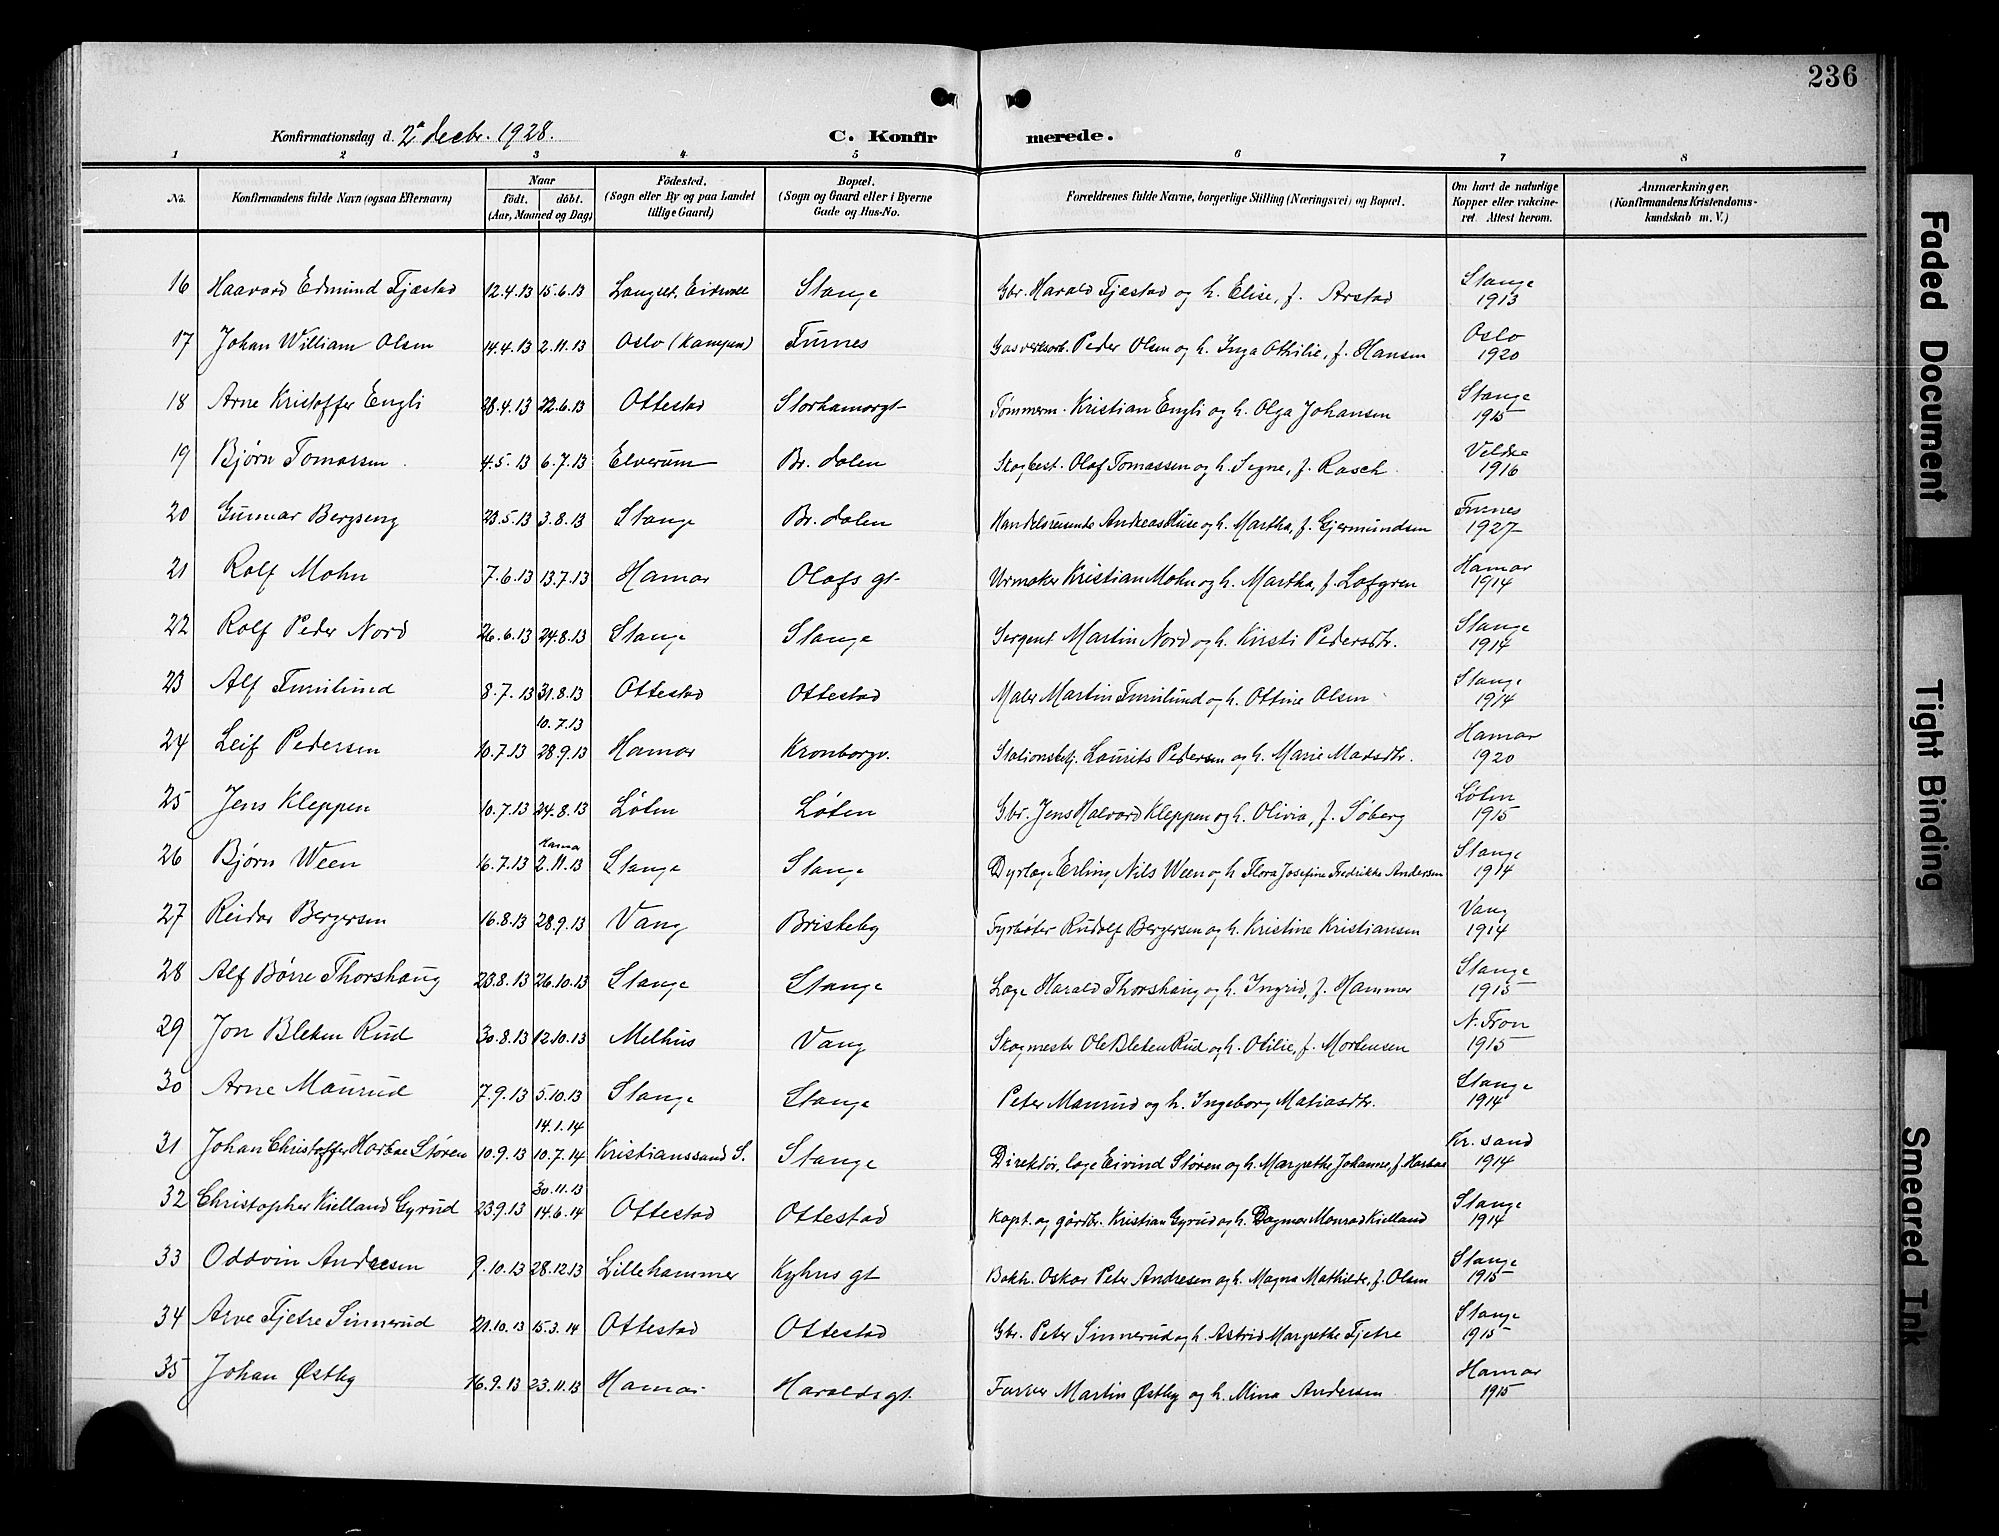 236
Konfirmationsdag d. 2. decbr. 1928.
C. Konfir merede.
1 2 3 4 5 6 7 8
No. Konfirmandens fulde Navn (ogsaa Efternavn) Naar født. døbt. (Aar, Maaned og Dag) Födested. (Sogn eller By og paa Landet tillige Gaard) Bopæl. (Sogn og Gaard eller i Byerne Gade og Hus-No. Forældrenes fulde Navne, borgerlige Stilling (Næringsvei) og Bopæl. Om havt de naturlige Kopper eller vakcineret. Attest herom. Anmærkninger. (Konfirmandens Kristendomskundskab m. V.)
16 Haavard Edmund Fjæstad 12.4.13 15.6.13 Langset, Eidsvoll Stange Gbr. Harald Fjæstad og h. Elise, f. Arstad Stange 1913
17 Johan William Olsen 14.4.13 2.11.13 Oslo (Kampen) Furnes Gasverksarb. Peder Olsen og h. Inga Othilie, f. Hansen Oslo 1920
18 Arne Kristoffer Engli 28.4.13 22.6.13 Ottestad Storhamargt. Tømmerm. Kristian Engli og h. Olga Johansen Stange 1915
19 Bjørn Tomassen 4.5.13 6.7.13 Elverum Br. dalen Skogbest. Olaf Tomassen og h. Signe, f. Rasch Veldre 1916
20 Gunnar Bergseng 23.5.13 3.8.13 Stange Br. dalen Handelsreisende Andreas Huse og h. Martha, f. Gjermundsen Furnes 1927
21 Rolf Mohn 7.6.13 13.7.13 Hamar Olafs gt. Urmaker Kristian Mohn og h. Martha, f. Lofgren Hamar 1914
22 Rolf Peder Nord 26.6.13 24.8.13 Stange Stange Sergent Martin Nord og h. Kirsti Pedersdtr. Stange 1914
23 Alf Furulund 8.7.13 31.8.13 Ottestad Ottestad Maler Martin Furulund og h. Ottine Olsen Stange 1914
10.7.13
24 Leif Pedersen 10.7.13 28.9.13 Hamar Kronborgv. Stationsbetj. Laurits Pedersen og h. Marie Madsdtr. Hamar 1920
25 Jens Kleppen 10.7.13 24.8.13 Løten Løten Gbr. Jens Halvard Kleppen og h. Olivia, f. Søberg Løten 1915
Hamar
26 Bjørn Ween 16.7.13 2.11.13 Stange Stange Dyrlæge Erling Nils Ween og h. Flora Josefine Fredrikke Andersen Stange 1914
27 Reidar Bergersen 16.8.13 28.9.13 Vang Briskeby Fyrbøter Rudolf Bergersen og h. Kristine Kristiansen Vang 1914
28 Alf Børre Thorshaug 23.8.13 26.10.13 Stange Stange Læge Harald Thorshaug og h. Ingrid, f. Hammer Stange 1915
29 Jon Bleken Rud 30.8.13 12.10.13 Melhus Vang Skogmester Ole Bleken Rud og h. Otilie, f. Mortensen N. Fron 1915
30 Arne Maurud 7.9.13 5.10.13 Stange Stange Peter Maurud og h. Ingeborg Matiasdtr. Stange 1914
14.1.14
31 Johan Christoffer Harboe Støren 10.9.13 10.7.14 Kristianssand S. Stange Direktør, læge Eivind Støren og h. Margrethe Johanne, f. Harboe Kr. sand 1914
30.11.13
32 Christopher Kielland Gyrud 23.9.13 14.6.14 Ottestad Ottestad Kapt. og gårdbr. Kristian Gyrud og h. Dagmar Monrad Kielland Stange 1914
33 Oddvin Andresen 9.10.13 28.12.13 Lillehammer Kyhus gt Bokh. Oskar Peter Andresen og h. Magna Mathilde, f. Olsen Stange 1915
34 Arve Fjetre Sinnerud 21.10.13 15.3.14 Ottestad Ottestad Gbr. Peter Sinnerud og h. Astrid Margrethe Fjetre Stange 1915
35 Johan Østby 16.9.13 23.11.13 Hamar Haralds gt. Farver Martin Østby og h. Mina Andersen Hamar 1915
Faded Document
Tight Binding
Smeared Ink